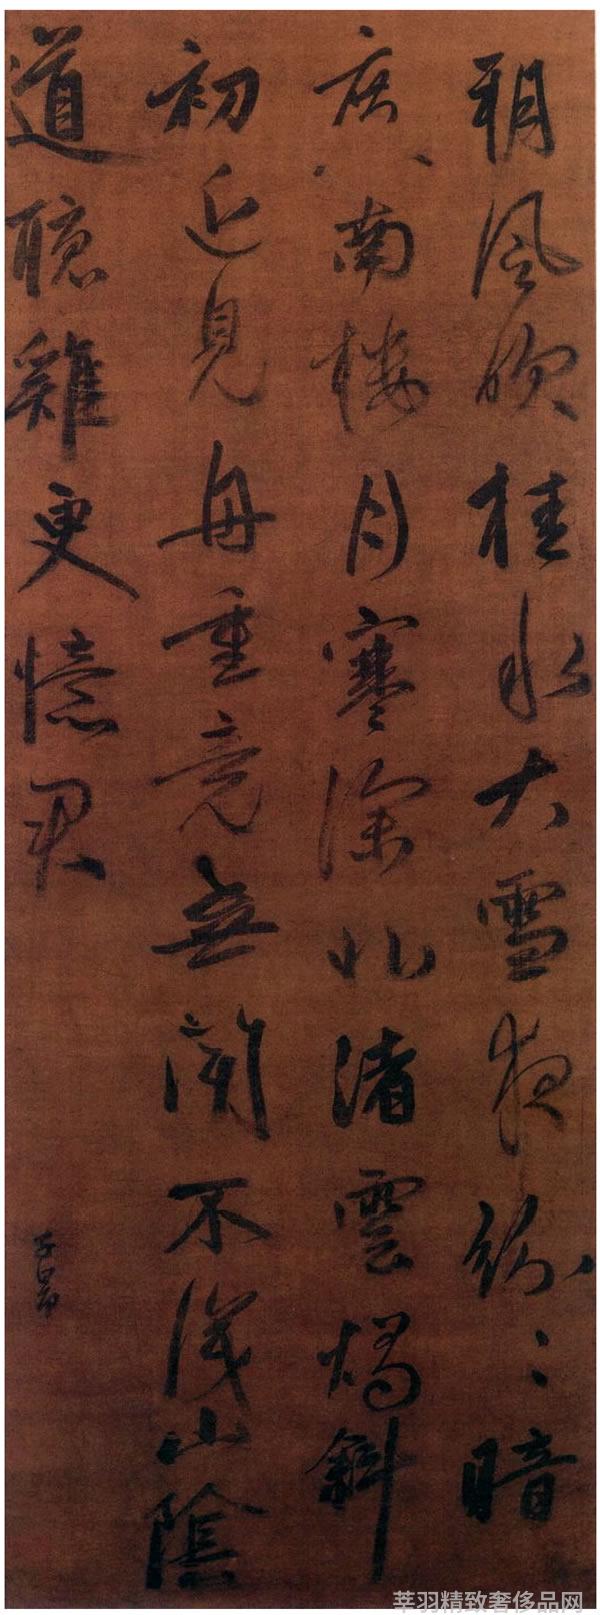 朔風吹桂水大雪夜紛〻暗
度南樓月寒深北渚雲燭斜
初近見舟重竟無聞不識山陰
道聽雞更憶君
子昂
莘羽精致奢侈品网